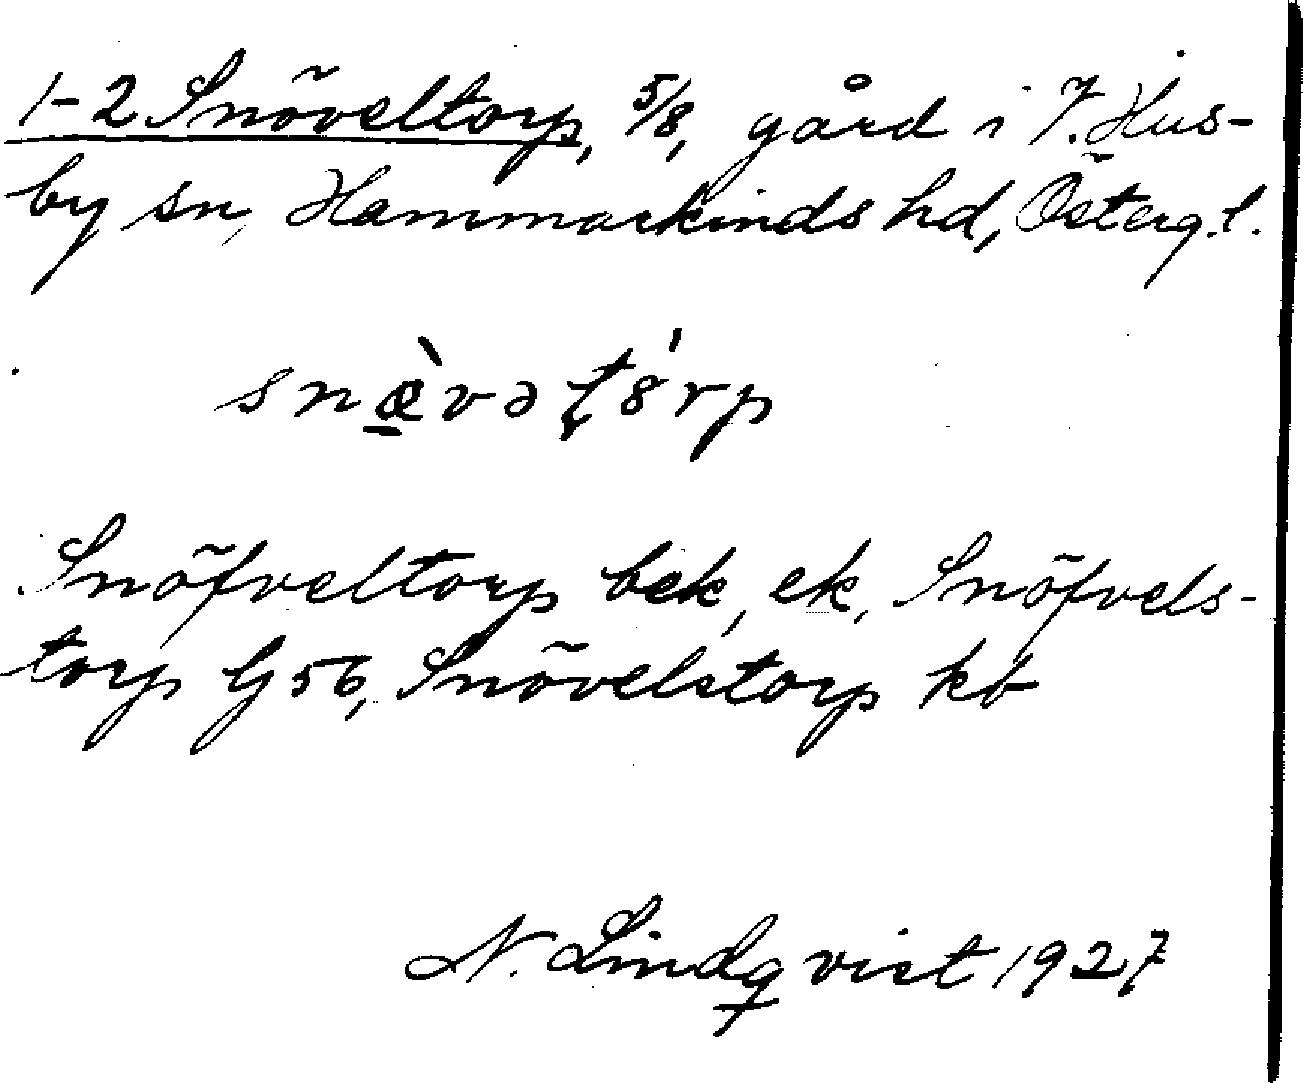 1-2 Snöveltorp, 5/8, gård i 7. Hus-
by sn, Hammarkinds hd, Österg.l.
snœ̠̀vət̢8́rp
Snöfveltorp bek, ek, Snöfvels-
torp G 56, Snövelstorp kb
N. Lindqvist 1927